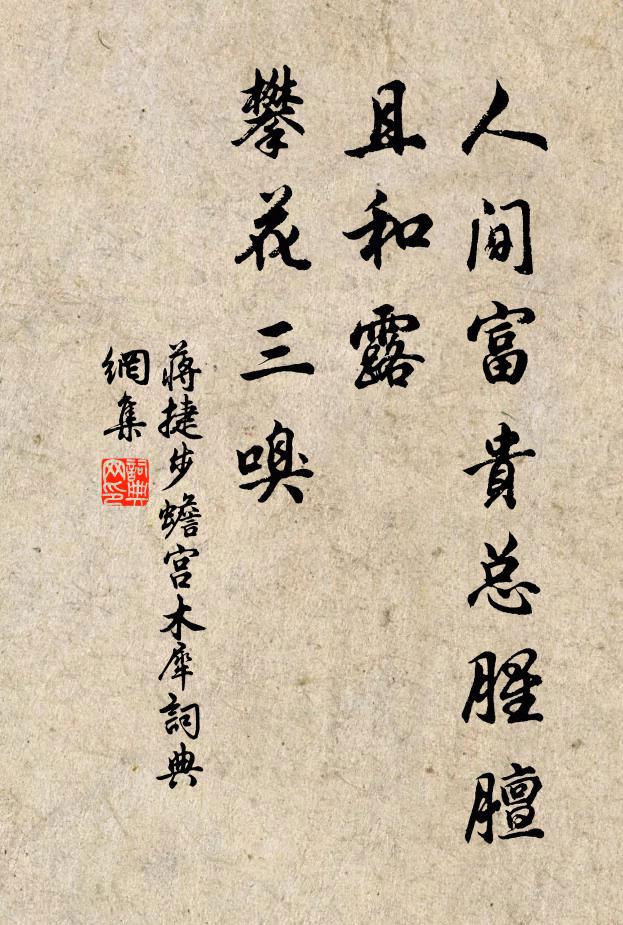 人间富貴总腥膻
且和露
攀花三嗅
蒋捷步蟾宫木犀詞典
網集
詞典网印